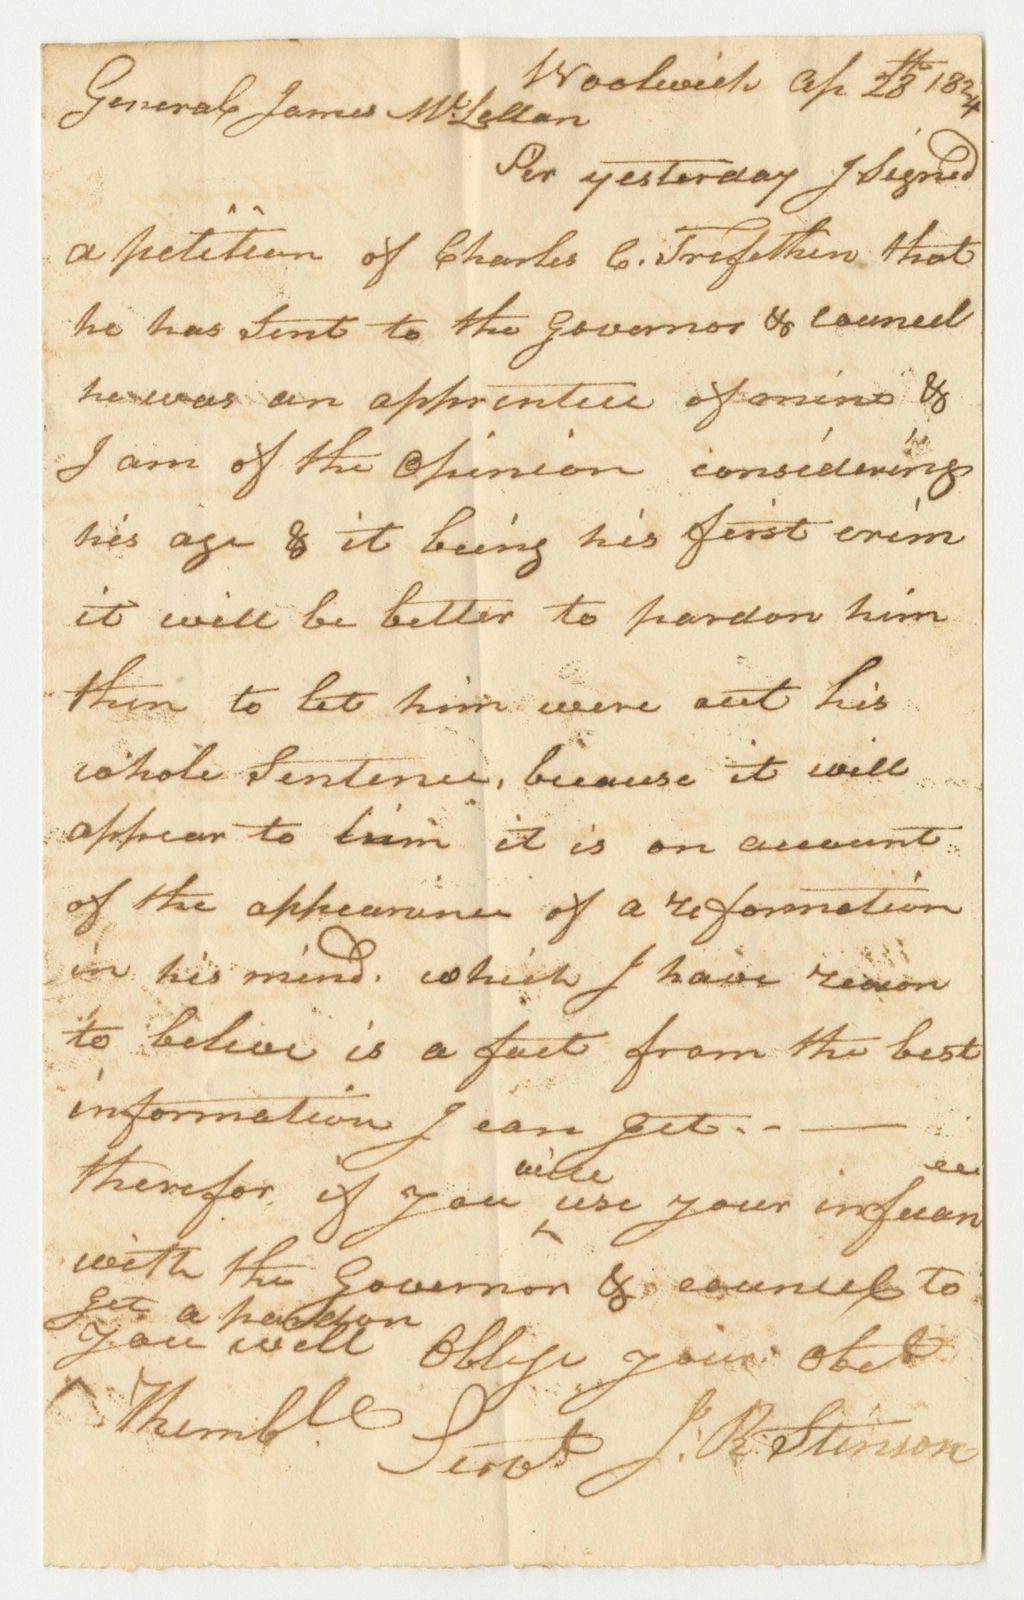 Woolwich Ap 28th 1824
General James McLellan
Sir yesterday I Signed
a petition of Charles C. Trefethin that
he has Sent to the Governor & councel
he was an apprentice of mine &
I am of the Opinion considering
his age & it being his first crim
it will be better to pardon him
then to let him were out his
whole Sentence, because it will
appear to him it is on account
of the appearance of a reformation
in his mind. which I have reason
to believe is a fact from the best
information I can get
therefor if you will use your infuance
with the Governor & councel to
get a pardon
you will Oblige your obet
& humble Servt J. R. Stinson